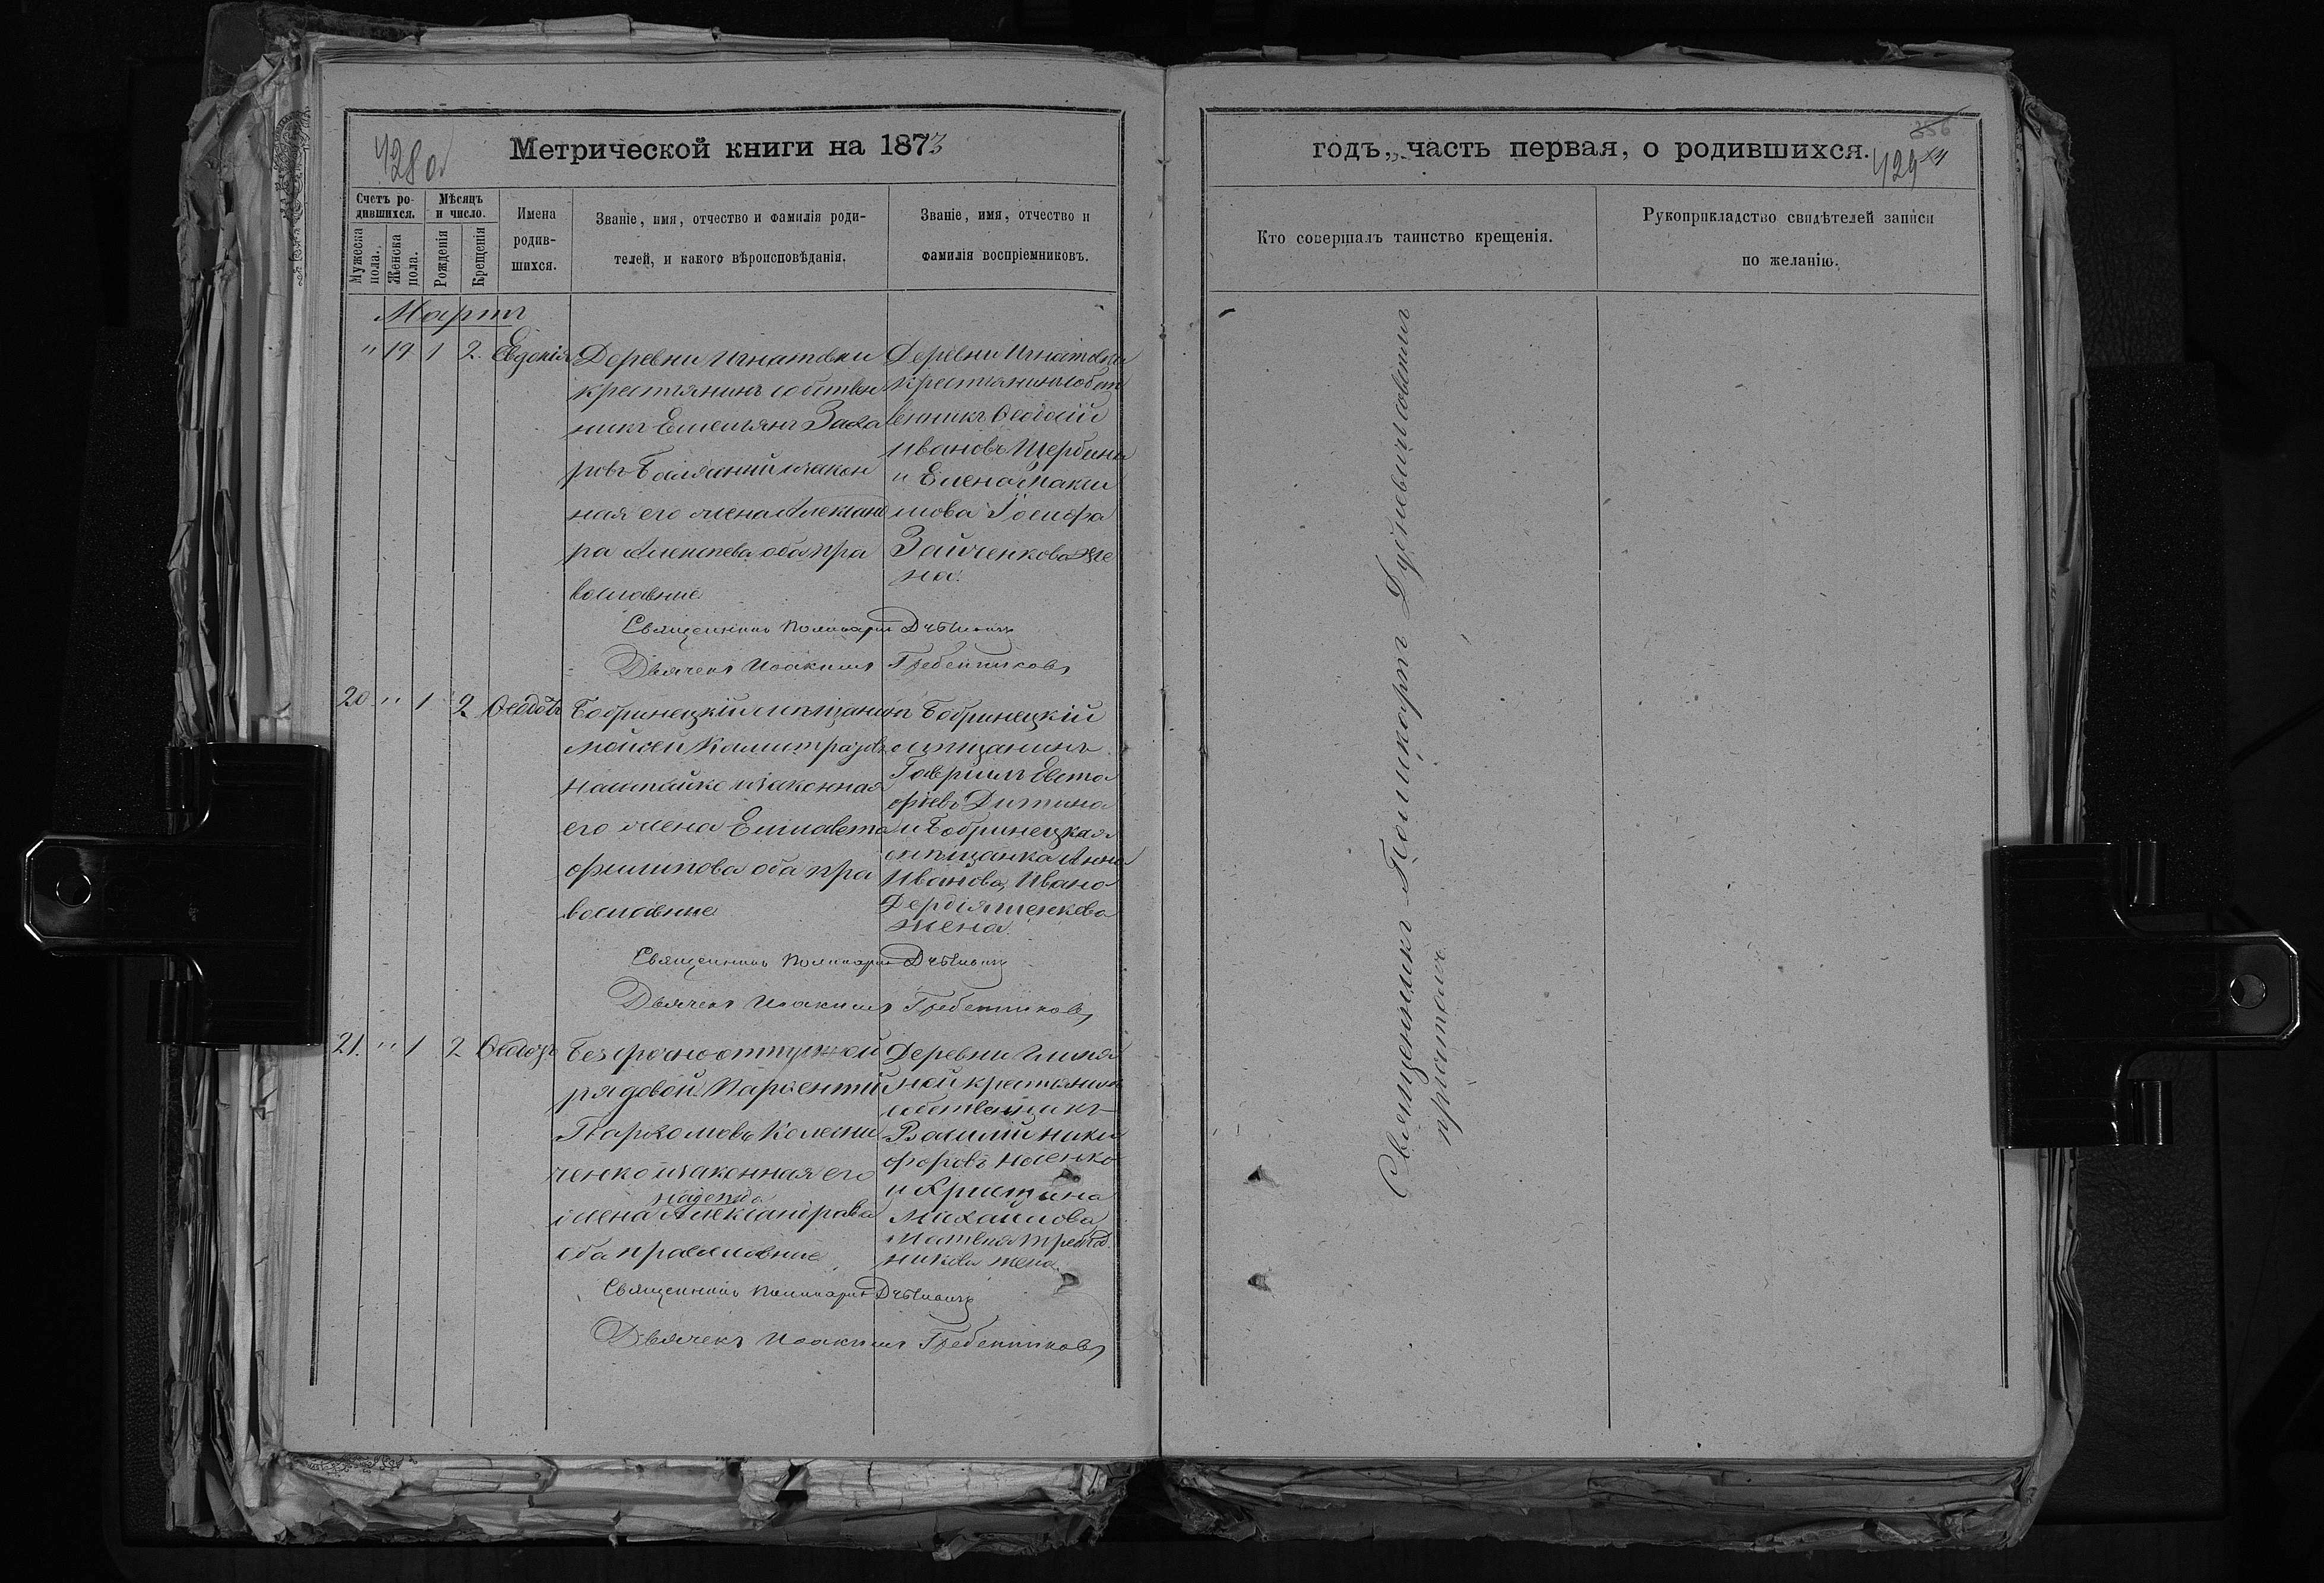 428 об
Метрической книги на 1873
Счетъ ро-
дившихся.
Мѣсяцъ
и число.
Мужеска
пола.
Женска
пола.
Рожденія
Крещенія
Имена
родив-
шихся.
Званіе, имя, отчество и фамилія роди-
телей, и какого вѣроисповѣданія.
Званіе, имя, отчество и
фамилія воспріемниковъ.
Мартъ
" 19 1 2 Евдокія
Деревни Игнатовки
крестьянинъ собствен
никъ Емельянъ Заха
ровъ и закон
ная его жена Александ
ра Алексѣева оба пра
вославные
Деревни Игнатовки
крестьянинъ собст
венникъ Ѳеодосій
Ивановъ Щербина
и Елена Макси
мова
Зайченкова же
на.
Священникъ Поликарпъ
Дьячекъ Иоакимъ Гребенниковъ
20 " 1 2 Ѳеодотъ
Бобринецкій мѣщанинъ
Мойсей Калистратовъ
и законная
его жена Елисавета
Филипова оба пра
вославные
Бобринецкій
мѣщанинъ
Гавріилъ Евста
фіевъ
и Бобринецкая
мѣщанка Анна
Иванова, Ивана
жена.
Священникъ Поликарпъ
Дьячекъ Иоакимъ Гребенниковъ
21. " 1 2
Безсрочноотпускной
рядовой Пархентій
Пархомовъ Колесни
ченко и законная его
Надежда
жена Александрова
оба православные
Деревни
ной крестьянинъ
собственникъ
Василій Ники
форовъ
и Христина
Михайлова
Матвея
никова жена.
Священникъ Поликарпъ
Дьячекъ Иоакимъ Гребенниковъ
годъ, часть первая, о родившихся.
356
429
Кто совершалъ таинство крещенія.
Рукоприкладство свидѣтелей записи
по желанію.
Священникъ Поликарпъ
причтомъ